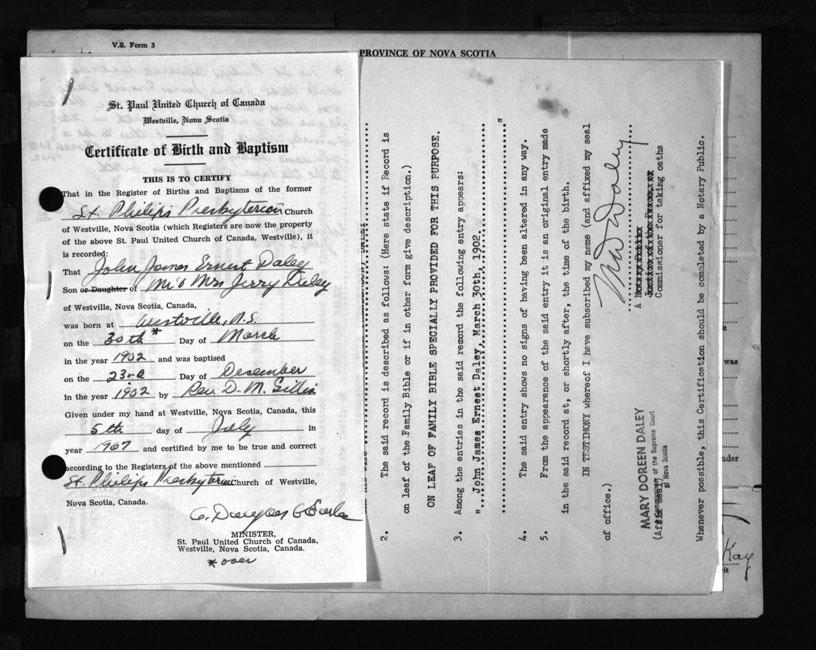 V.S. Form 3
PROVINCE OF NOVA SCOTIA
St. Paul United Church of Canada
Westville, Nova Scotia
Certificate of Birth and Baptism
THIS IS TO CERTIFY
That in the Register of Births and Baptisms of the former
St. Philips Presbyterian Church
of Westville, Nova Scotia (which Registers are now the property
of the above St. Paul United Church of Canada, Westville), it
is recorded:
That John James Ernest Daley
Son or Daughter of Mr & Mrs Jerry Daley
of Westville, Nova Scotia, Canada,
was born at Westville, N.S.
on the 30th * Day of March
in the year 1902 and was baptised
on the 23rd Day of December
in the year 1902 by Rev D. M. Gillis
Given under my hand at Westville, Nova Scotia, Canada, this
5th day of July in
year 1967 and certified by me to be true and correct
according to the Registers of the above mentioned
St. Philips Presbyterian Church of Westville,
Nova Scotia, Canada.
MINISTER,
St. Paul United Church of Canada,
Westville, Nova Scotia, Canada.
* over
2. The said record is described as follows: (Here state if Record is
on leaf of the Family Bible or if in other form give description.)
ON LEAF OF FAMILY BIBLE SPECIALLY PROVIDED FOR THIS PURPOSE.
3. Among the entries in the said record the following entry appears:
"...John James Ernest Daley,, March 30th, 1902.
"
4. The said entry shows no signs of having been altered in any way.
5. From the appearance of the said entry it is an original entry made
in the said record at, or shortly after, the time of the birth.
IN TESTIMONY whereof I have subscribed my name (and affixed my seal
of office.)
M D Daley
A Notary Public
Commissioner for taking oaths
MARY DOREEN DALEY
of the Supreme Court
of Nova Scotia
Whenever possible, this Certification should be completed by a Notary Public.
was
nder
Kay